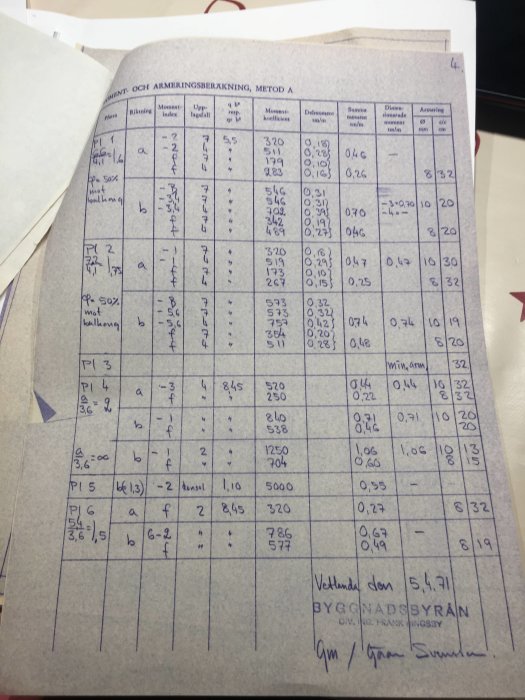 4.
MOMENT- OCH ARMERINGSBERÄKNING, METOD A
Platta Riktning Moment-index Upp-lagsfall q b² resp. gr b² Moment-koefficient Delmoment Summa moment Dimen-sionerande moment Armering
Ø mm c/c cm
Pl 1 -2 7 5,5 320 0,18
a -2 4 " 511 0,28 0,46 —
= 1,6 f 7 " 179 0,10
f 4 " 283 0,16 0,26 8 32
50% -3,4 7 " 546 0,31
mot 7 " 546 0,31 10 20
balkong b -3,4 4 " 702 0,39 0,70
f 7 " 342 0,19
f 4 " 489 0,27 0,46 8 20
Pl 2 -1 7 " 320 0,18
a -1 4 " 519 0,29 0,47 0,47 10 30
4,1 f 7 " 173 0,10
f 4 " 267 0,15 0,25 8 32
50% -8 7 " 573 0,32
mot -5,6 7 " 573 0,32
balkong b -5,6 4 " 757 0,42 0,74 0,74 10 19
f 7 " 354 0,20
f 4 " 511 0,28 0,48 8 20
Pl 3 min. arm. 32
Pl 4 a -3 4 8,45 520 0,44 0,44 10 32
3,6 f " " 250 0,22 8 32
b -1 " " 840 0,71 0,71 10 20
f " " 538 0,46 20
a/3,6 = ∞ b -1 2 " 1250 1,06 1,06 10 13
f " " 704 0,60 8 15
Pl 5 b(1,3) -2 konsol 1,10 5000 0,55 — —
Pl 6 a f 2 8,45 320 0,27 8 32
5,4/3,6 = 1,5 b 6-2 " " 786 0,67 —
f " " 577 0,49 8 19
Vetlanda den 5.4.71
BYGGNADSBYRÅN
DIV. ING. FRANK INGSBY
Gm / Göran Svensson